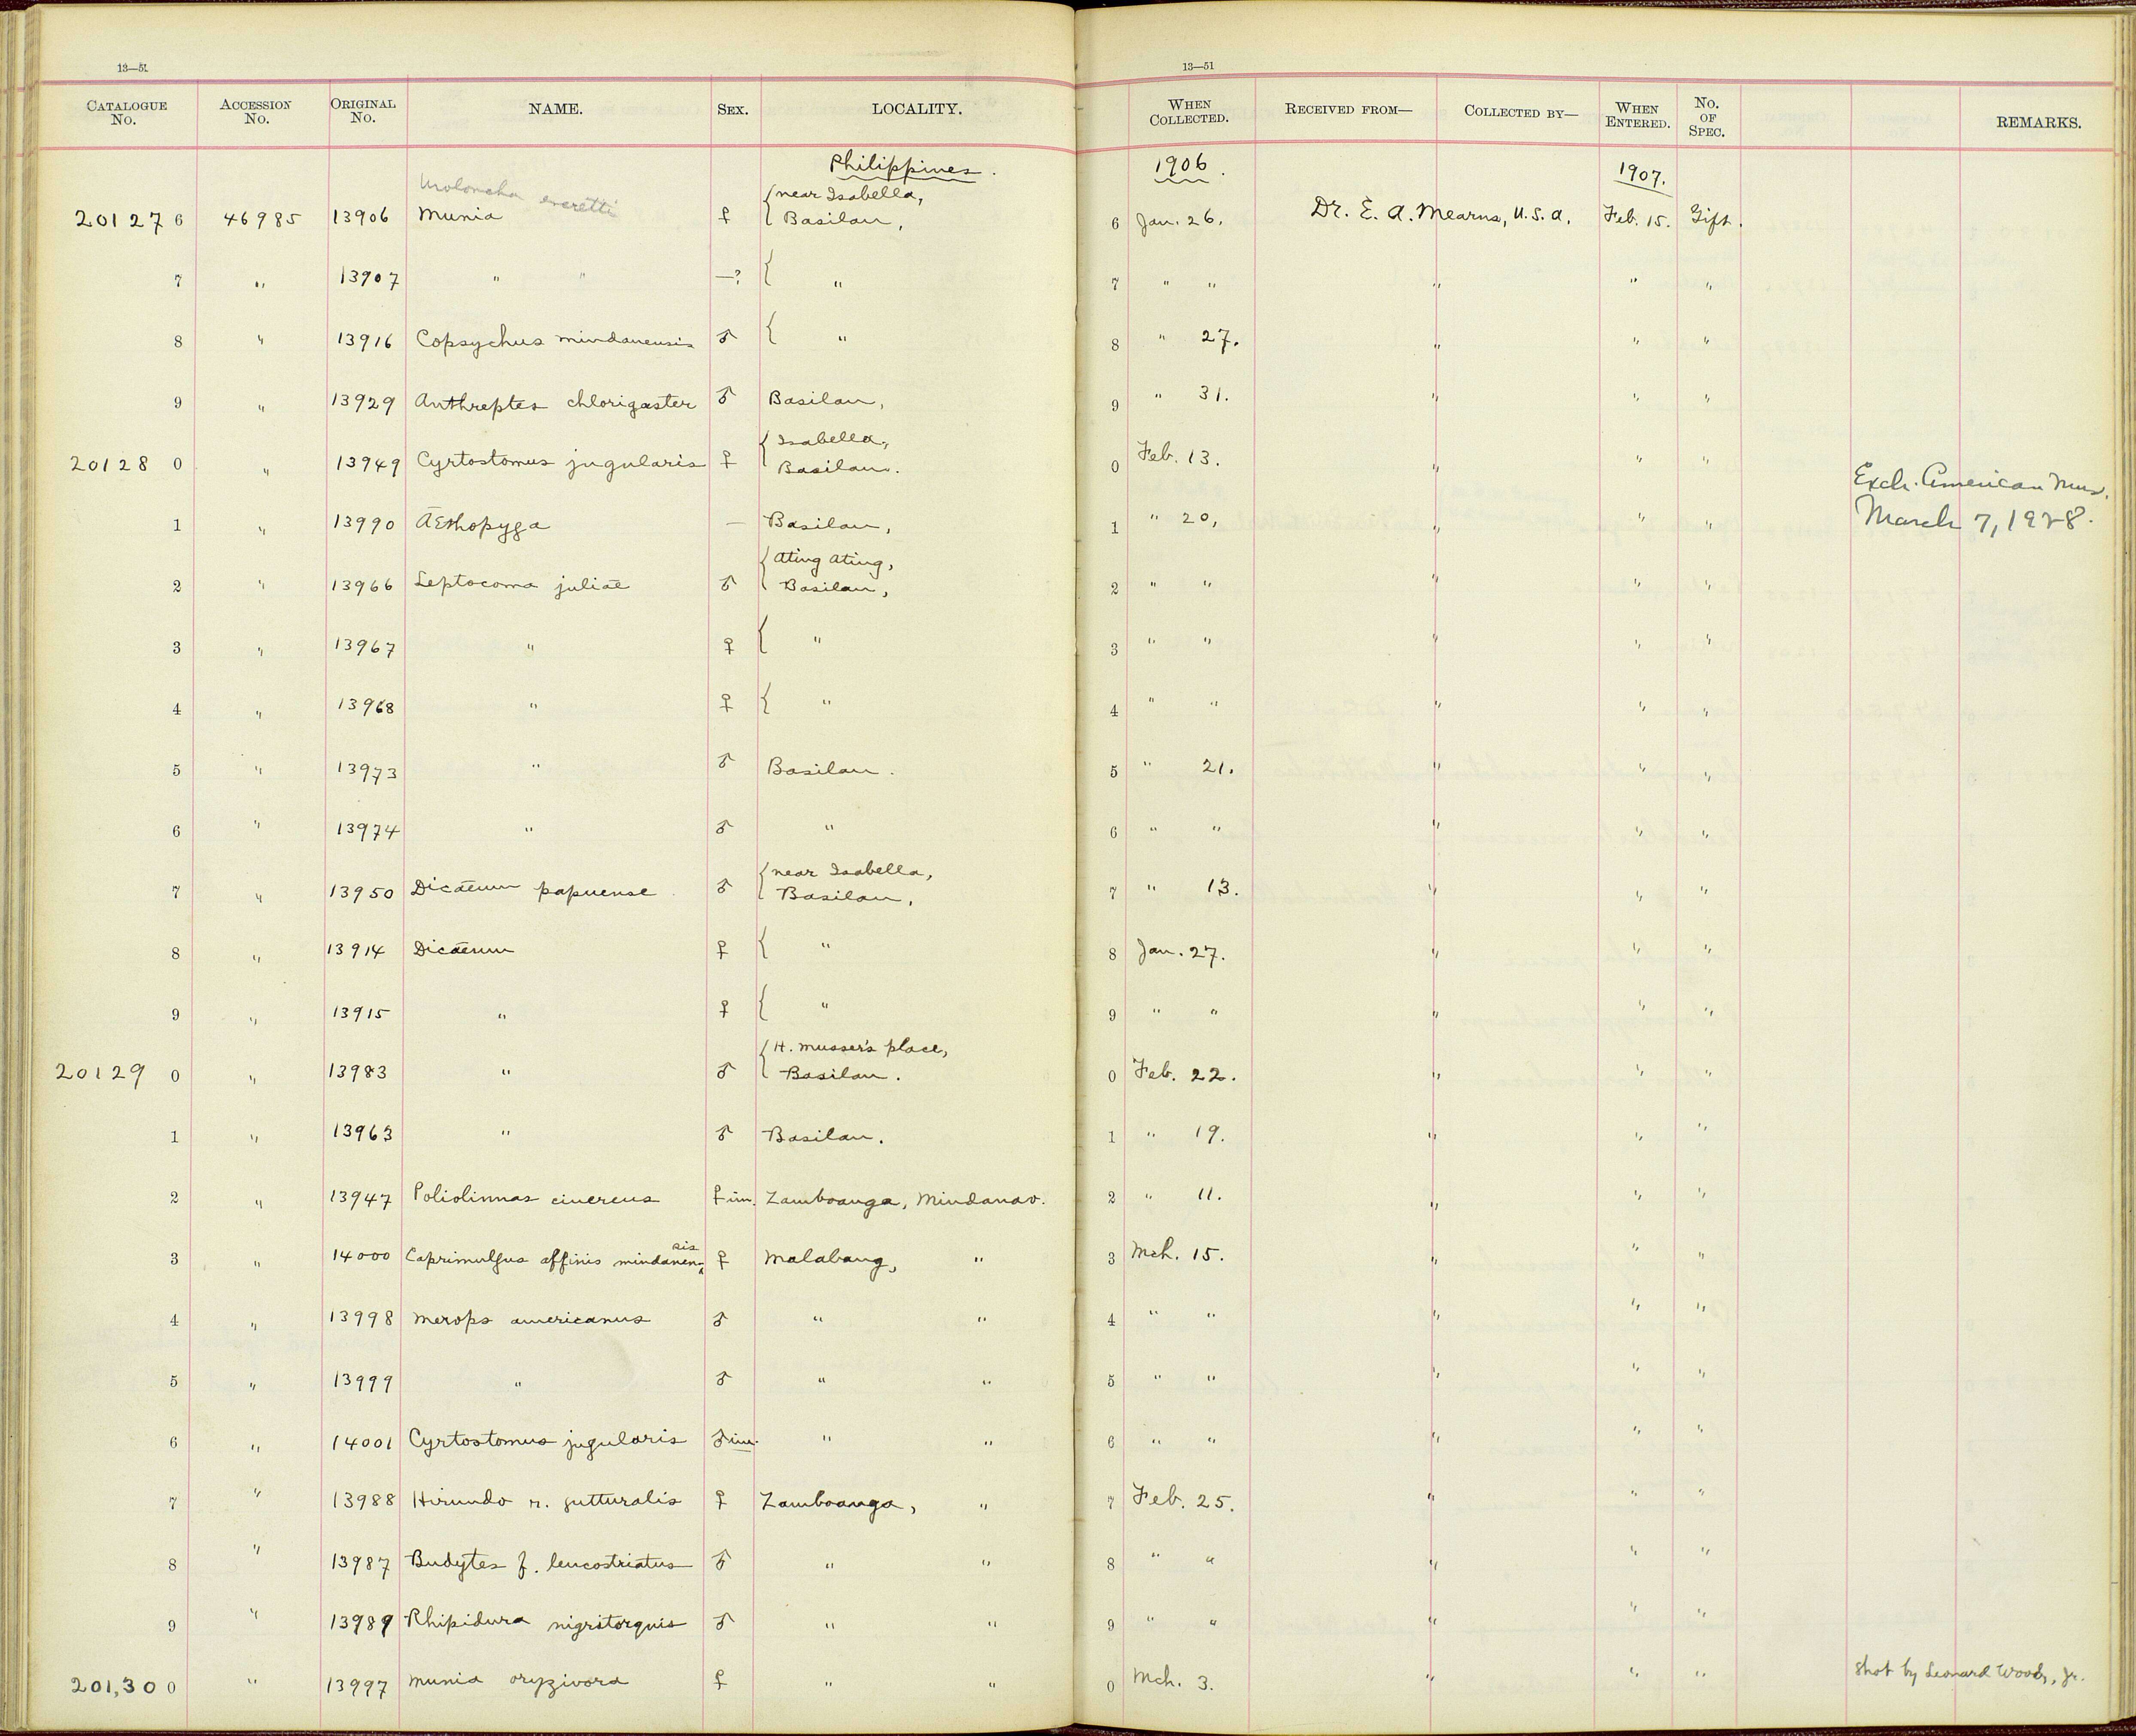 13—51
13—51
CATALOGUE No. ACCESSION No. ORIGINAL No. NAME. SEX. LOCALITY. WHEN COLLECTED. RECEIVED FROM— COLLECTED BY— WHEN ENTERED. No. OF SPEC. REMARKS.
Philippines. 1906. 1907.
Uroloncha everetti {near Isabella,
20127 6 46985 13906 Munia ♀ Basilan, 6 Jan. 26. Dr. E. A. Mearns, U.S.A. Feb. 15. Gift.
7 " 13907 " " —? { " 7 " " " " "
8 " 13916 Copsychus mindanensis ♂ { " 8 " 27. " " "
9 " 13929 Anthreptes chlorigaster ♂ Basilan, 9 " 31. " " "
{Isabella,
20128 0 " 13949 Cyrtostomus jugularis ♀ Basilan. 0 Feb. 13. " " "
Exch. American Mus.
1 " 13990 Æthopyga — Basilan, 1 " 20, " " " March 7, 1928.
{Ating Ating,
2 " 13966 Leptocoma juliae ♂ Basilan, 2 " " " " "
3 " 13967 " ♀ { " 3 " " " " "
4 " 13968 " ♀ { " 4 " " " " "
5 " 13973 " ♂ Basilan. 5 " 21. " " "
6 " 13974 " ♂ " 6 " " " " "
{near Isabella,
7 " 13950 Dicaeum papuense ♂ Basilan, 7 " 13. " " "
8 " 13914 Dicaeum ♀ { " 8 Jan. 27. " " "
9 " 13915 " ♀ { " 9 " " " " "
{H. Musser's place,
20129 0 " 13983 " ♂ Basilan. 0 Feb. 22. " " "
1 " 13963 " ♂ Basilan. 1 " 19. " " "
2 " 13947 Poliolimnas cinereus ♀ im. Zamboanga, Mindanao. 2 " 11. " " "
3 " 14000 Caprimulgus affinis mindanensis ♀ Malabang, " 3 Mch. 15. " " "
4 " 13998 Merops americanus ♂ " " 4 " " " " "
5 " 13999 " ♂ " " 5 " " " " "
6 " 14001 Cyrtostomus jugularis ♂ im. " " 6 " " " " "
7 " 13988 Hirundo r. gutturalis ♀ Zamboanga, " 7 Feb. 25. " " "
8 " 13987 Budytes f. leucostriatus ♂ " " 8 " " " " "
9 " 13989 Rhipidura nigritorquis ♂ " " 9 " " " " "
201,30 0 " 13997 Munia oryzivora ♀ " " 0 Mch. 3. " " " Shot by Leonard Wood, Jr.